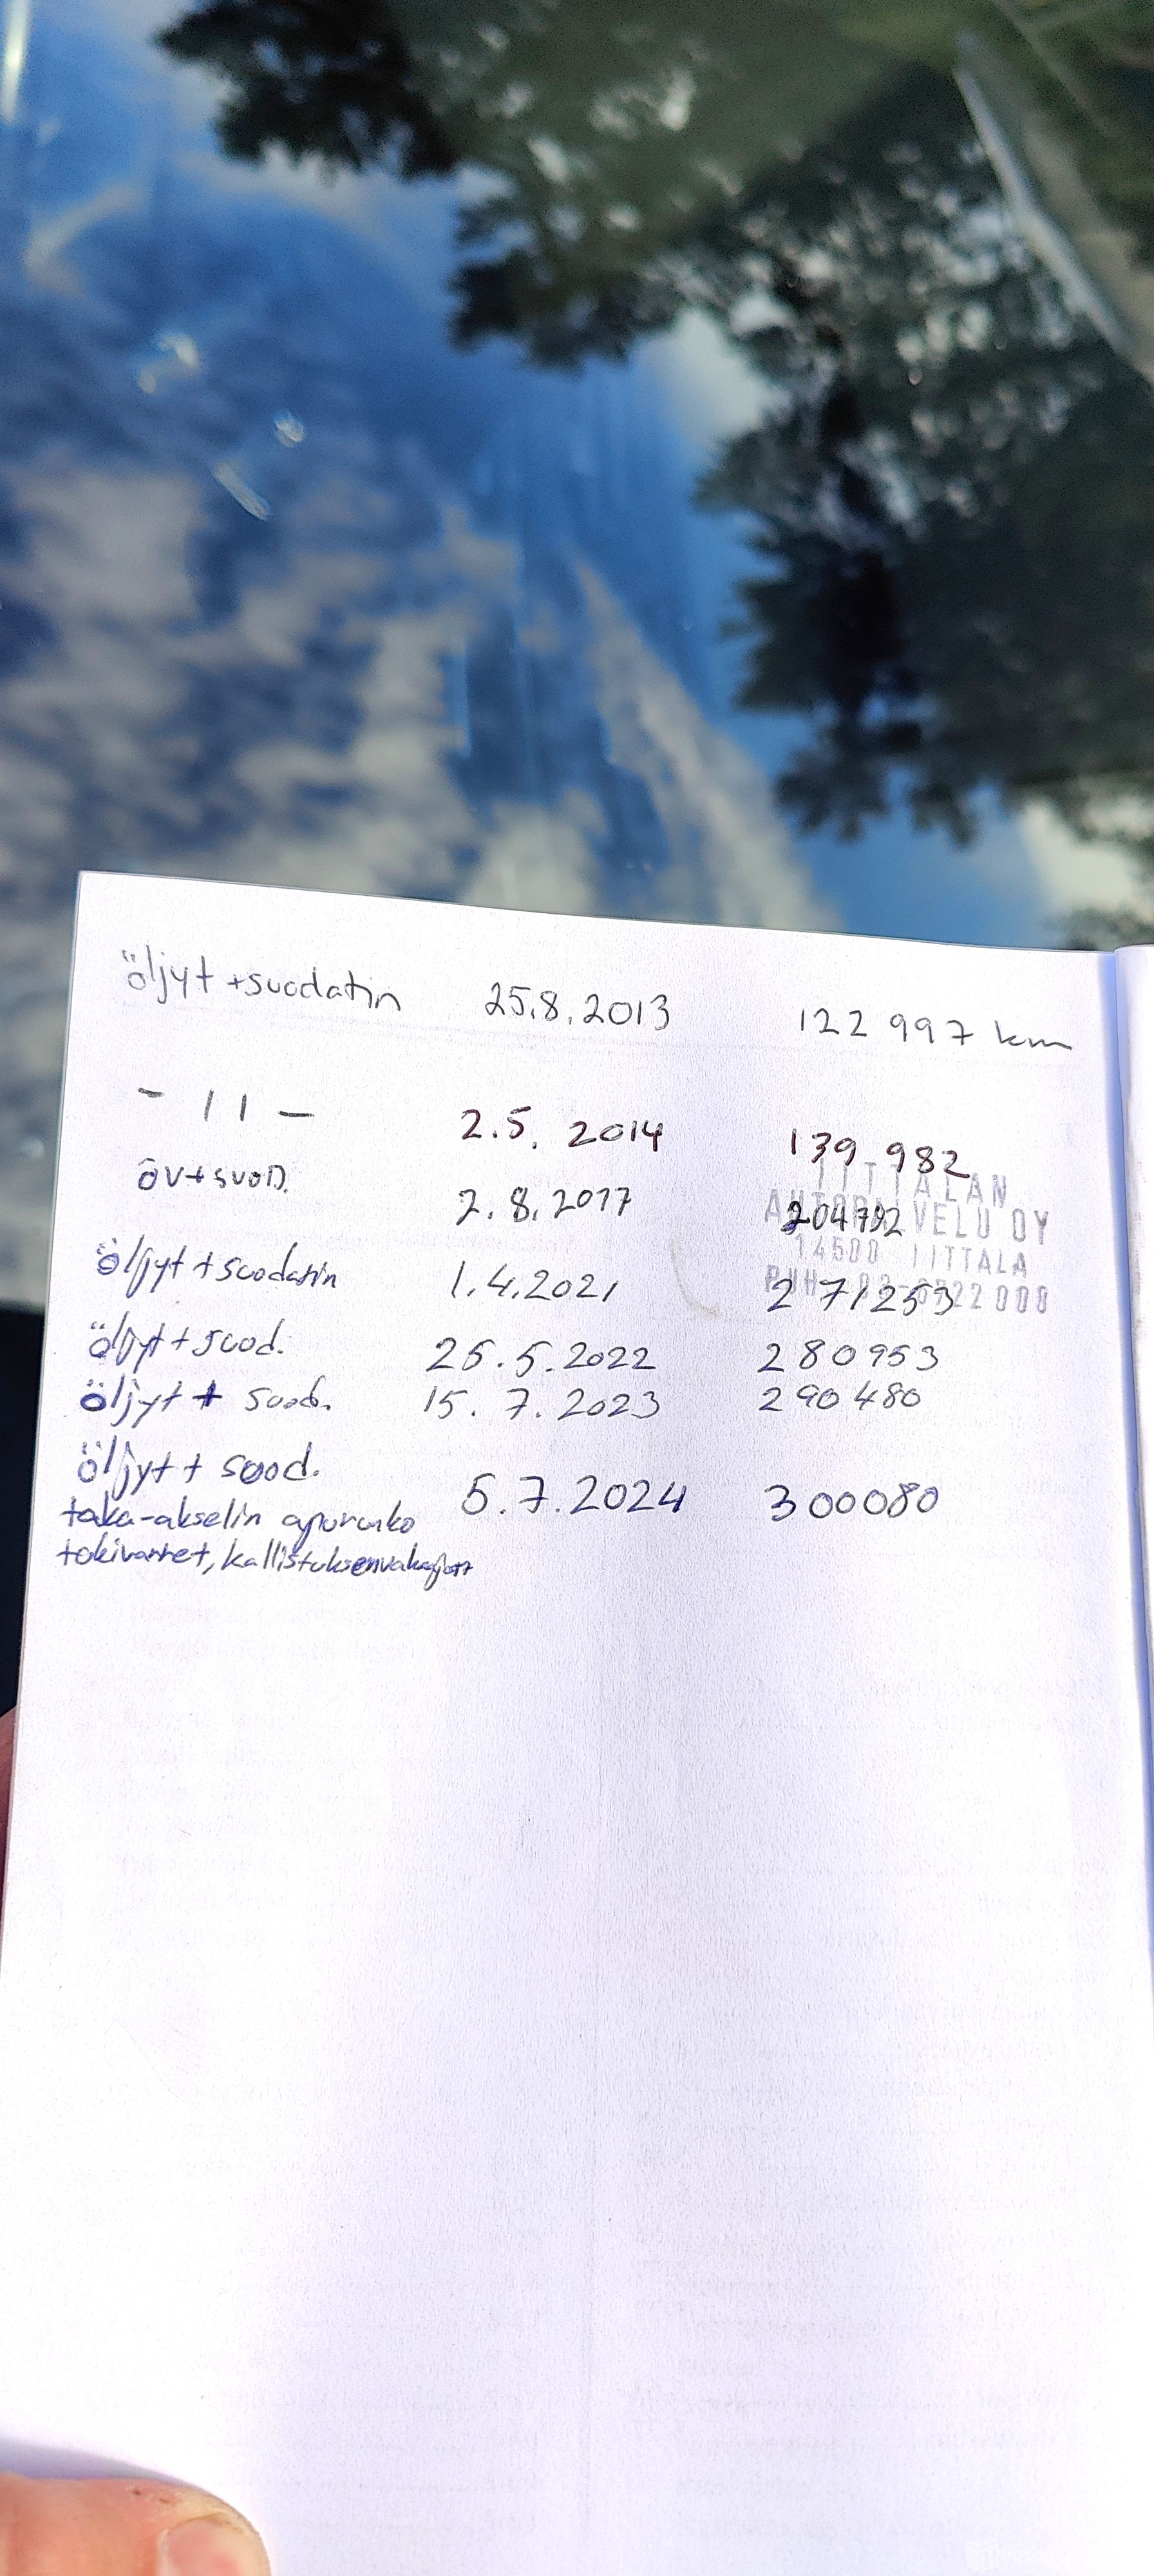 öljyt + suodatin 25.8.2013 122 997 km
- 11 - 2.5. 2014 139 982
ÖV+SUOD. 2.8.2017 204792
IITTALAN
AUTOPALVELU OY
14500 IITTALA
PUH. 03-6722 000
öljyt + suodatin 1.4.2021 271253
öljyt + suod. 25.5.2022 280953
öljyt + suod. 15.7.2023 290480
öljyt + suod. 5.7.2024 300080
taka-akselin apurunko
tukivarret, kallistuksenvakaajat